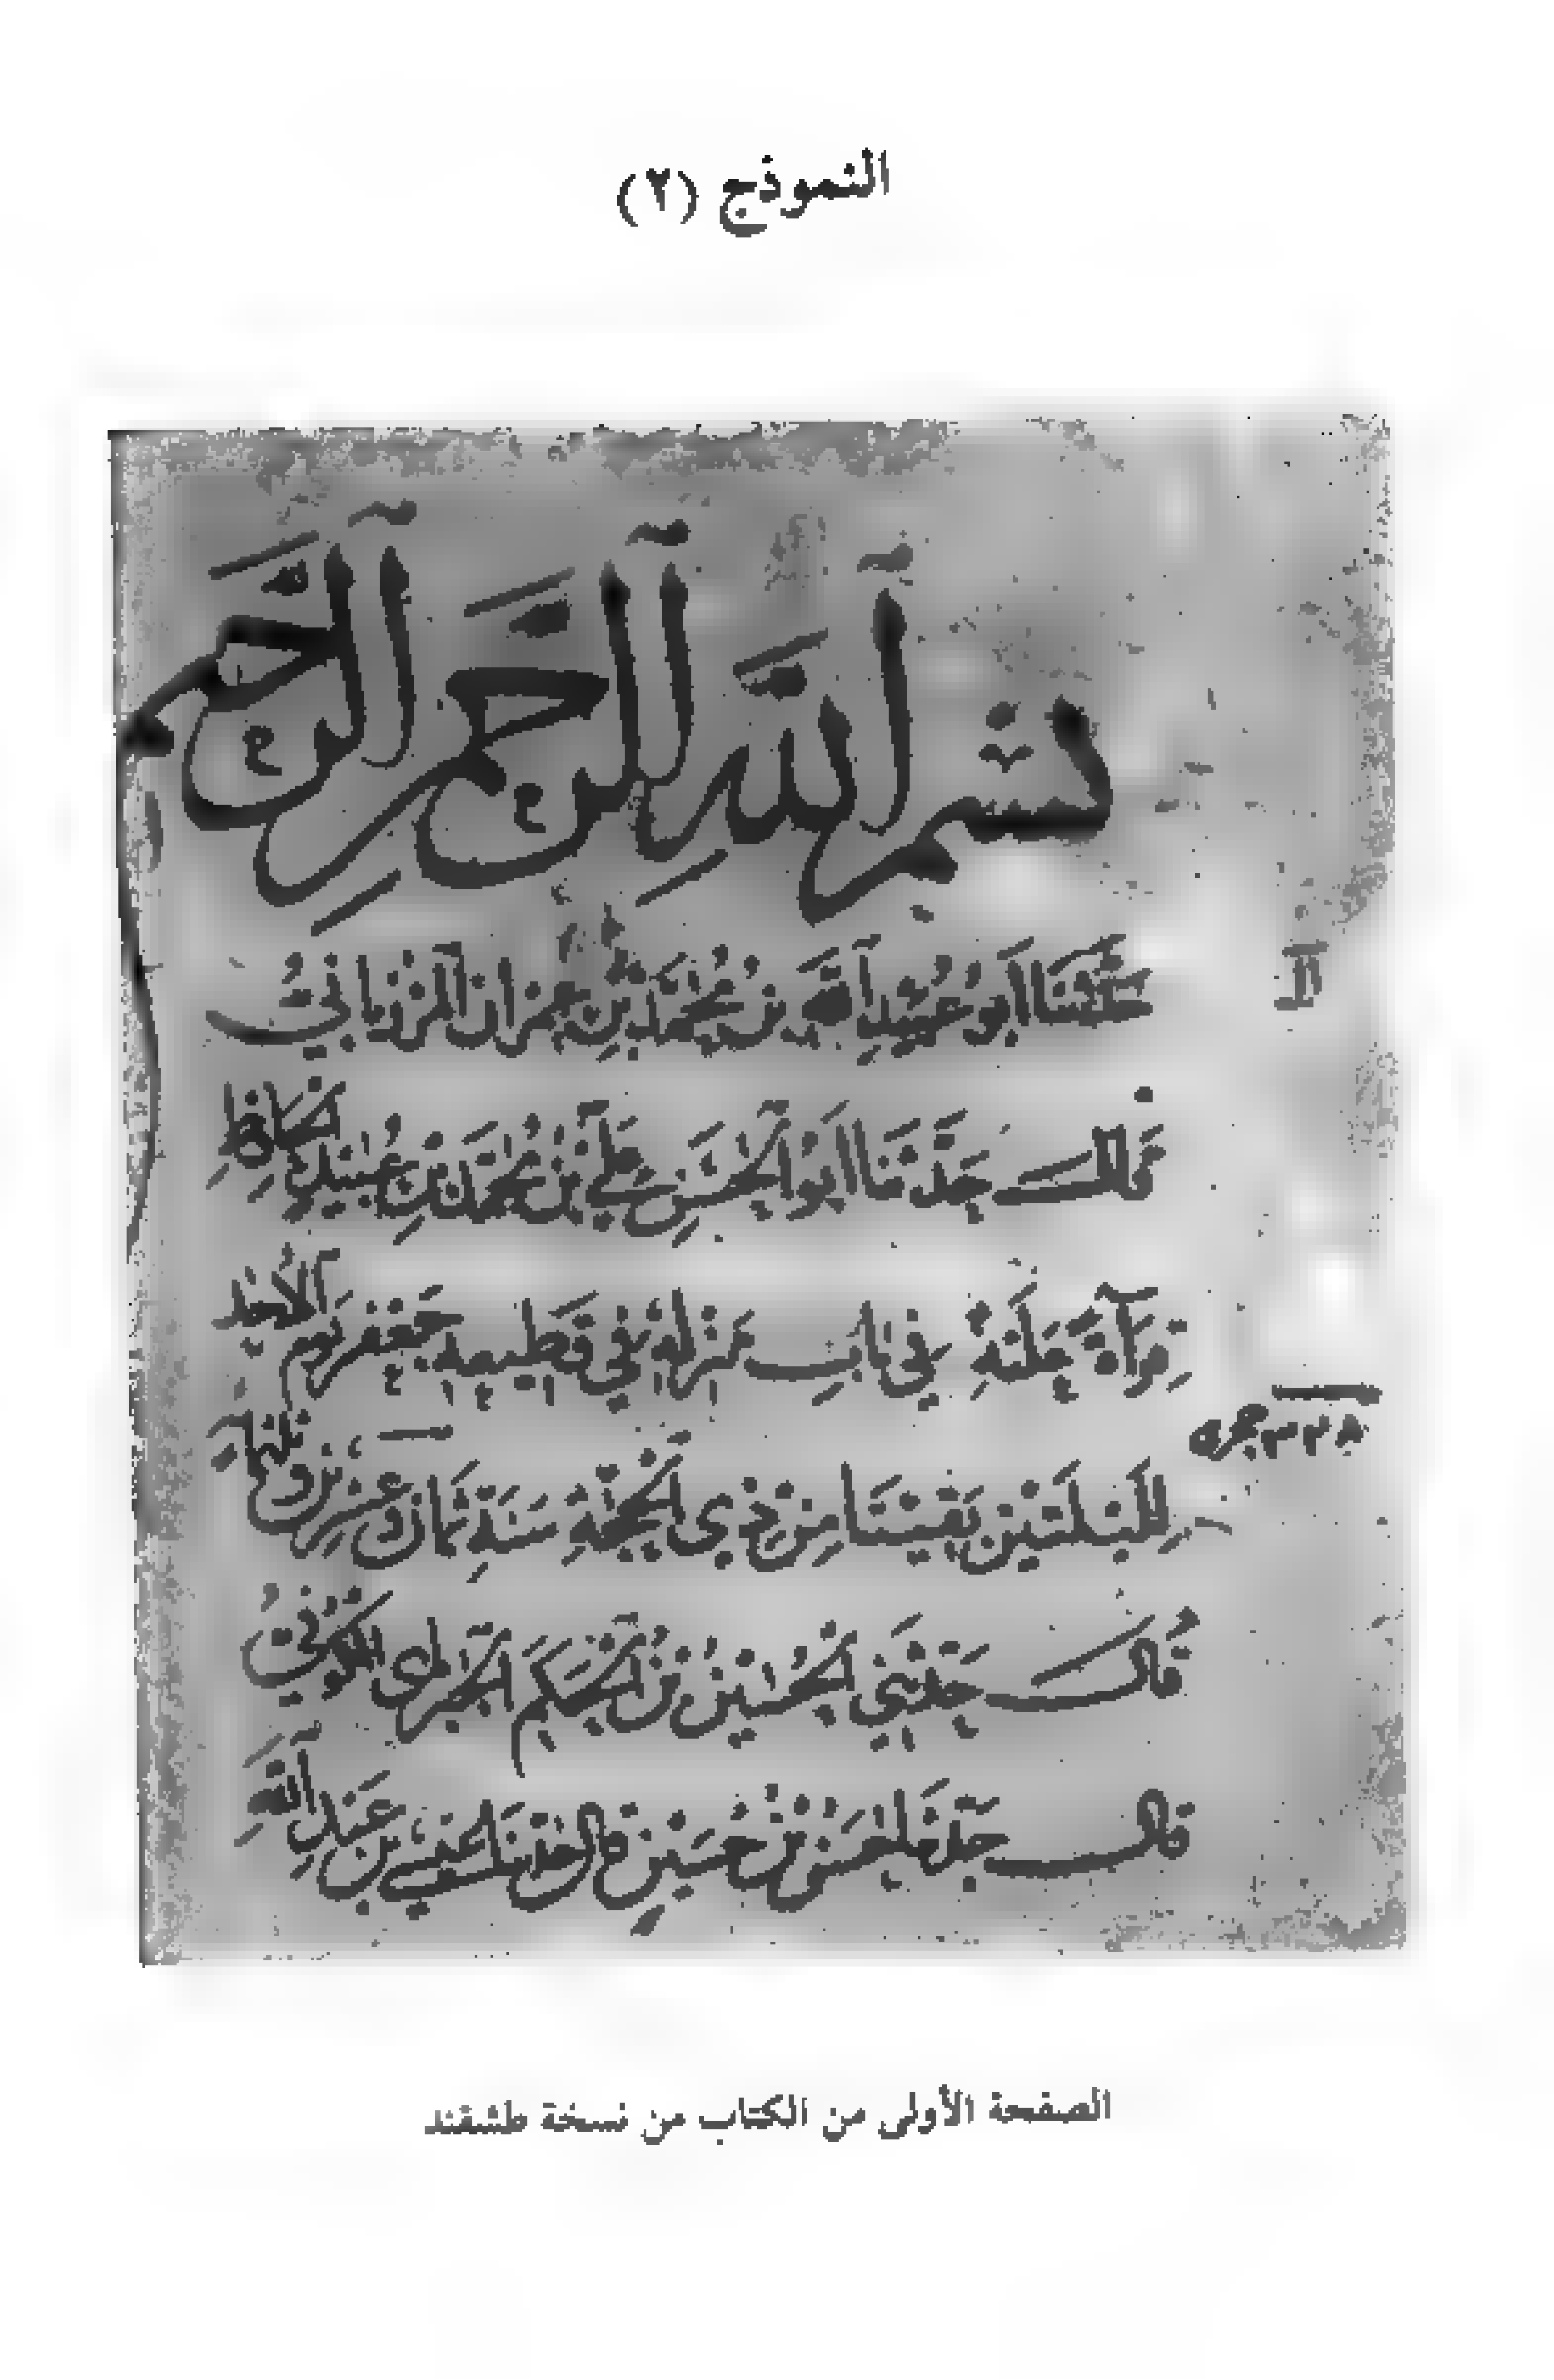 النموذج (٢)
بسم الله الرحمن الرحيم
حدثنا أبو عبيد الله بن محمد بن عمران المرزباني
قال حدثنا أبو الحسن علي بن محمد بن عبيد الحافظ
قراءة عليه في باب منزله في قطيعة جعفر يوم الأحد
لليلتين بقيتا من ذي الحجة سنة ثمان وعشرين وثلثمائة
قال حدثني الحسين بن الحكم الحبري الكوفي
قال حدثنا حسن بن حسين قال حدثنا عيسى بن عبد الله
الصفحة الأولى من الكتاب من نسخة طشقند